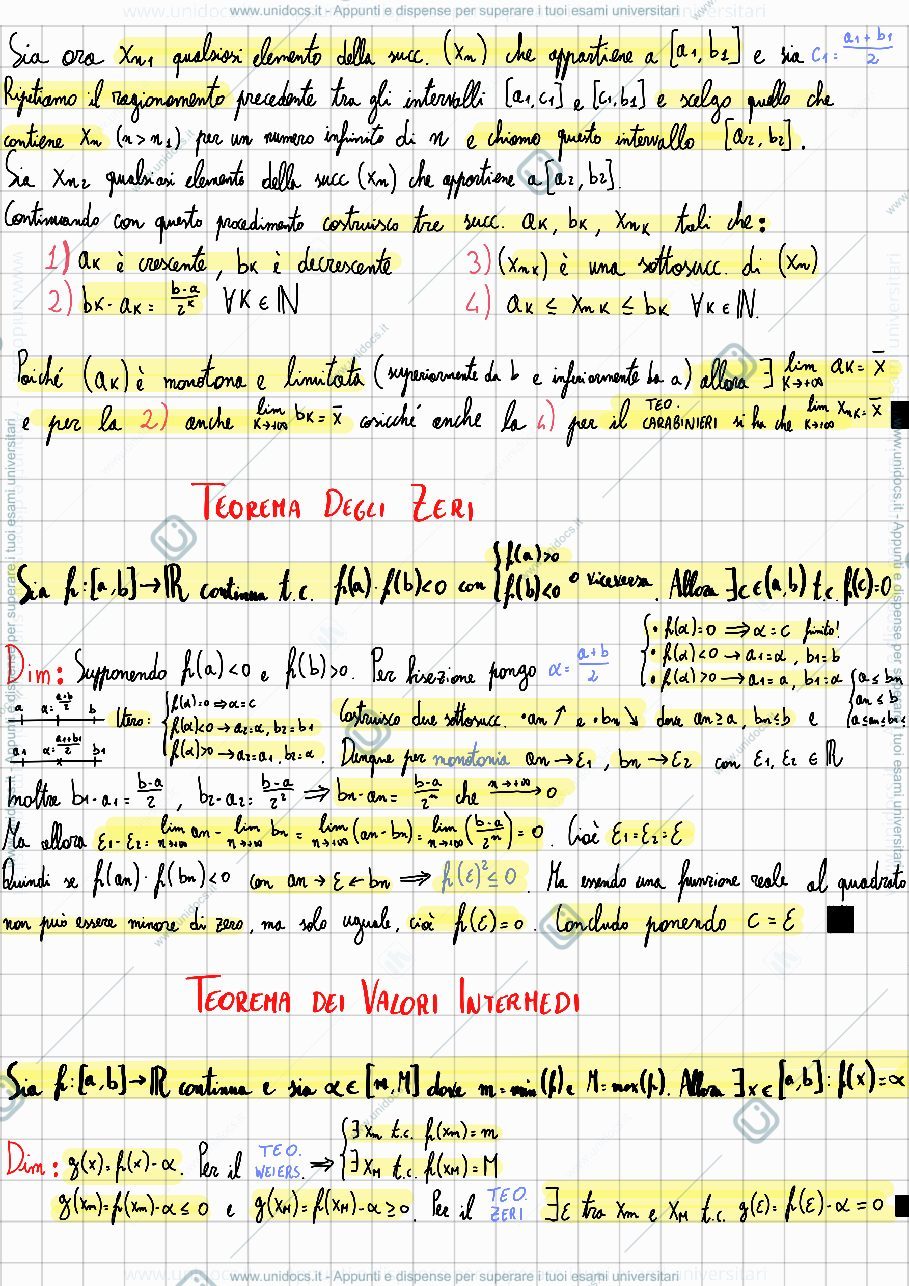 www.unidocs.it - Appunti e dispense per superare i tuoi esami universitari
Sia ora xn1 qualsiasi elemento della succ. (xn) che appartiene a [a1, b1] e sia c1 = (a1+b1)/2
Ripetiamo il ragionamento precedente tra gli intervalli [a1,c1] e [c1,b1] e scelgo quello che
contiene xn (n>n1) per un numero infinito di n e chiamo questo intervallo [a2, b2].
Sia xn2 qualsiasi elemento della succ (xn) che appartiene a [a2, b2].
Continuando con questo procedimento costruisco tre succ. aK, bK, xnK tali che:
1) aK è crescente, bK è decrescente 3) (xnK) è una sottosucc. di (xn)
2) bK - aK = (b-a)/2^K ∀K∈ℕ 4) aK ≤ xnK ≤ bK ∀K∈ℕ.
Poiché (aK) è monotona e limitata (superiormente da b e inferiormente da a) allora ∃ lim K→+∞ aK = x̄
e per la 2) anche lim K→+∞ bK = x̄ cosicché anche la 4) per il TEO. CARABINIERI si ha che lim K→+∞ xnK = x̄ ■
TEOREMA DEGLI ZERI
Sia f:[a,b]→ℝ continua t.c. f(a)·f(b)<0 con {f(a)>0 f(b)<0 o viceversa. Allora ∃c∈(a,b) t.c. f(c)=0
Dim: Supponendo f(a)<0 e f(b)>0. Per bisezione pongo α = (a+b)/2 {• f(α)=0 ⟹ α=c finito!
• f(α)<0 → a1=α, b1=b
• f(α)>0 → a1=a, b1=α
{a ≤ bn
an ≤ b
a≤an≤bn≤
a α=(a+b)/2 b
a1 α=(a1+b1)/2 b1
Itero: {f(α)=0 ⟹ α=c
f(α)<0 → a2=α, b2=b1
f(α)>0 → a2=a1, b2=α.
Costruisco due sottosucc. • an ↗ e • bn ↘ dove an≥a, bn≤b e
Dunque per monotonia an→ε1, bn→ε2 con ε1, ε2 ∈ ℝ
Inoltre b1-a1 = (b-a)/2, b2-a2 = (b-a)/2² ⟹ bn-an = (b-a)/2^n che n→+∞ → 0
Ma allora ε1-ε2 = lim n→+∞ an - lim n→+∞ bn = lim n→+∞ (an-bn) = lim n→+∞ ((b-a)/2^n) = 0. Cioè ε1=ε2=ε
Quindi se f(an)·f(bn)<0 con an→ε←bn ⟹ f(ε)²≤0. Ma essendo una funzione reale al quadrato
non può essere minore di zero, ma solo uguale, cioè f(ε)=0. Concludo ponendo c=ε ■
TEOREMA DEI VALORI INTERMEDI
Sia f:[a,b]→ℝ continua e sia α∈[m,M] dove m=min(f) e M=max(f). Allora ∃x∈[a,b]: f(x)=α
Dim: g(x)=f(x)-α. Per il TEO. WEIERS. ⟹ {∃xm t.c. f(xm)=m
∃xM t.c. f(xM)=M
g(xm)=f(xm)-α≤0 e g(xM)=f(xM)-α≥0. Per il TEO. ZERI ∃ε tra xm e xM t.c. g(ε)=f(ε)-α=0 ■
www.unidocs.it - Appunti e dispense per superare i tuoi esami universitari